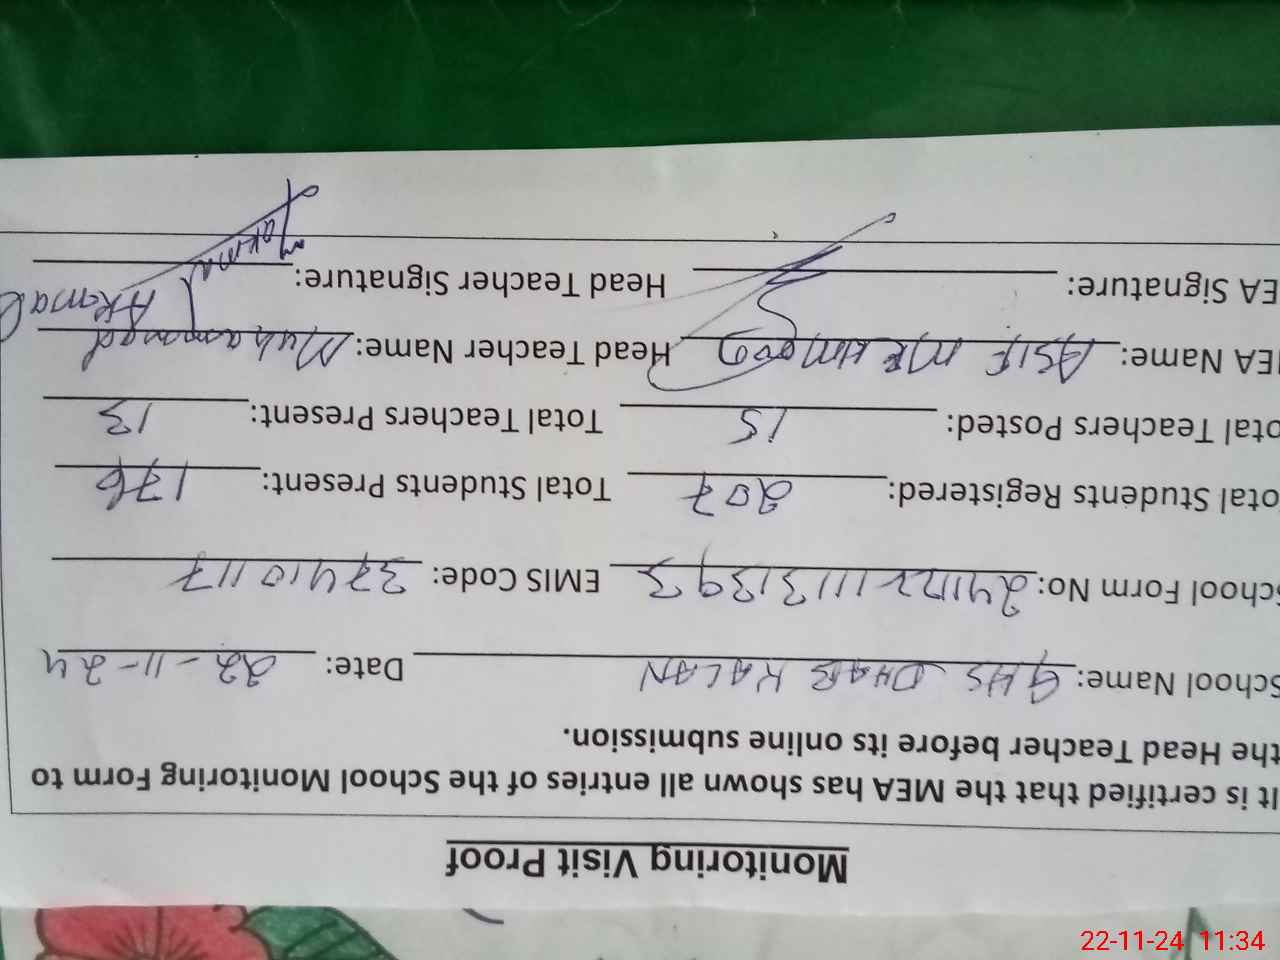 Monitoring Visit Proof
It is certified that the MEA has shown all entries of the School Monitoring Form to
the Head Teacher before its online submission.
School Name: GHS DHAB KALAN Date: 22-11-24
School Form No: 24112211131393 EMIS Code: 37410117
otal Students Registered: 207 Total Students Present: 176
otal Teachers Posted: 15 Total Teachers Present: 13
MEA Name: ASIF MEHMOOD Head Teacher Name: Muhammad Akmal
EA Signature: Head Teacher Signature:
22-11-24 11:34